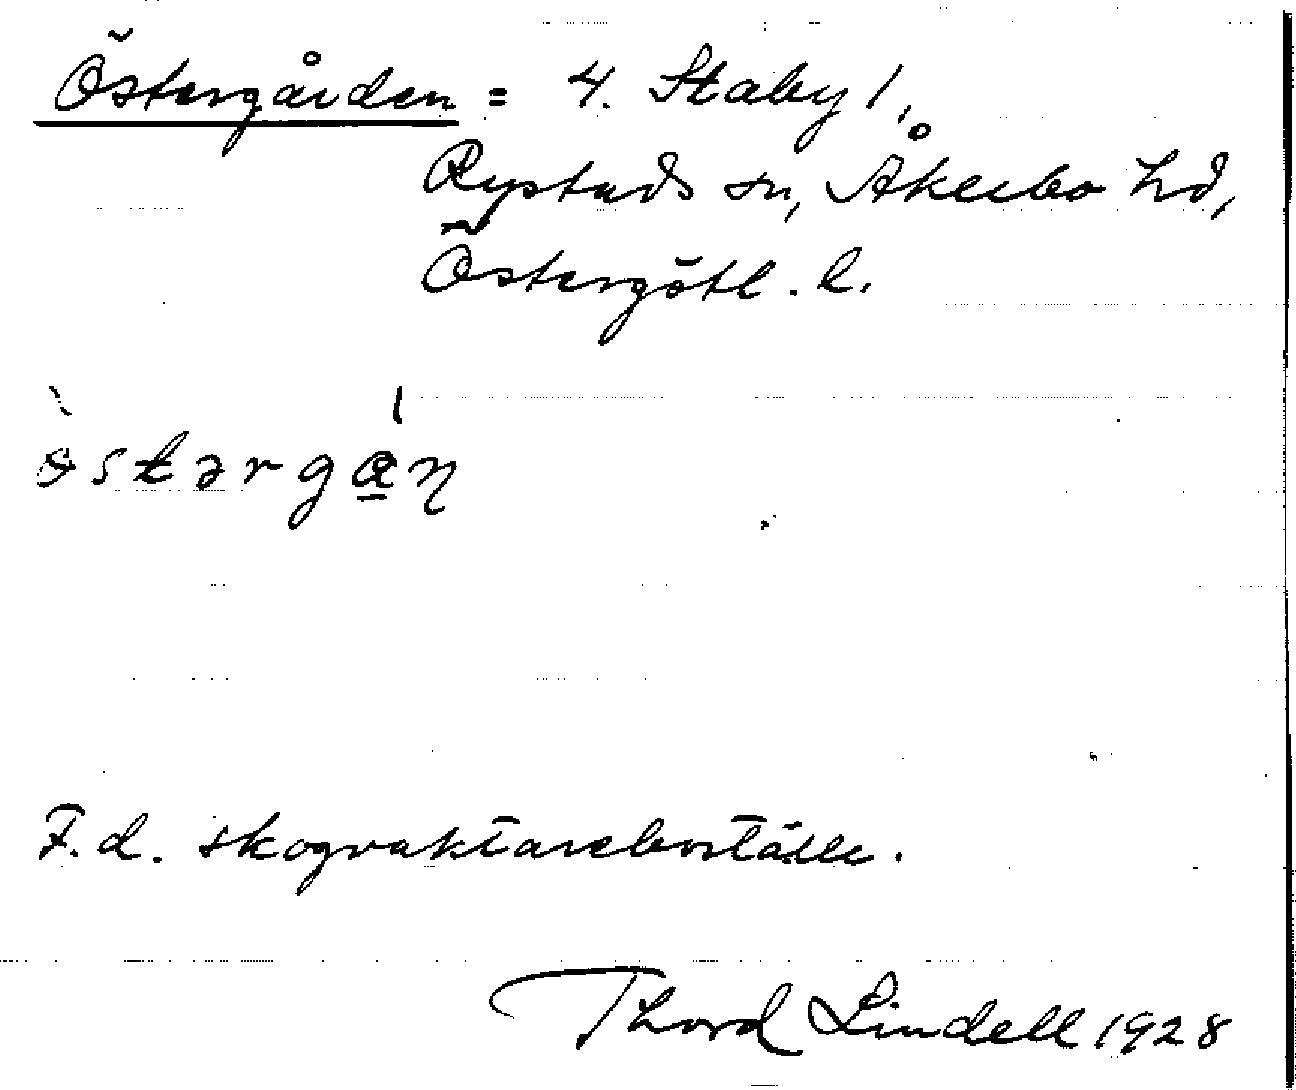 Östergården = 4. Staby 1,
Rystads sn, Åkerbo hd,
Östergötl. l.
östərgạ̊ṇ
F.d. skogvaktareboställe.
Thord Lindell 1928